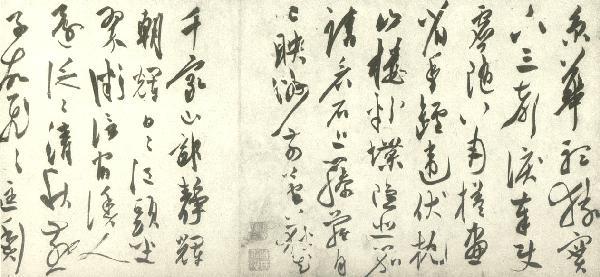 京華聽猿實
下三聲淚奉使
虛隨八月槎畫
省香爐違伏枕
山樓粉堞隱悲笳
請看石上藤蘿月
已映洲前蘆荻花
千家山郭靜輝
朝輝日々江頭坐
翠微信宿漁人
還泛々清秋燕
子故飛々匡衡